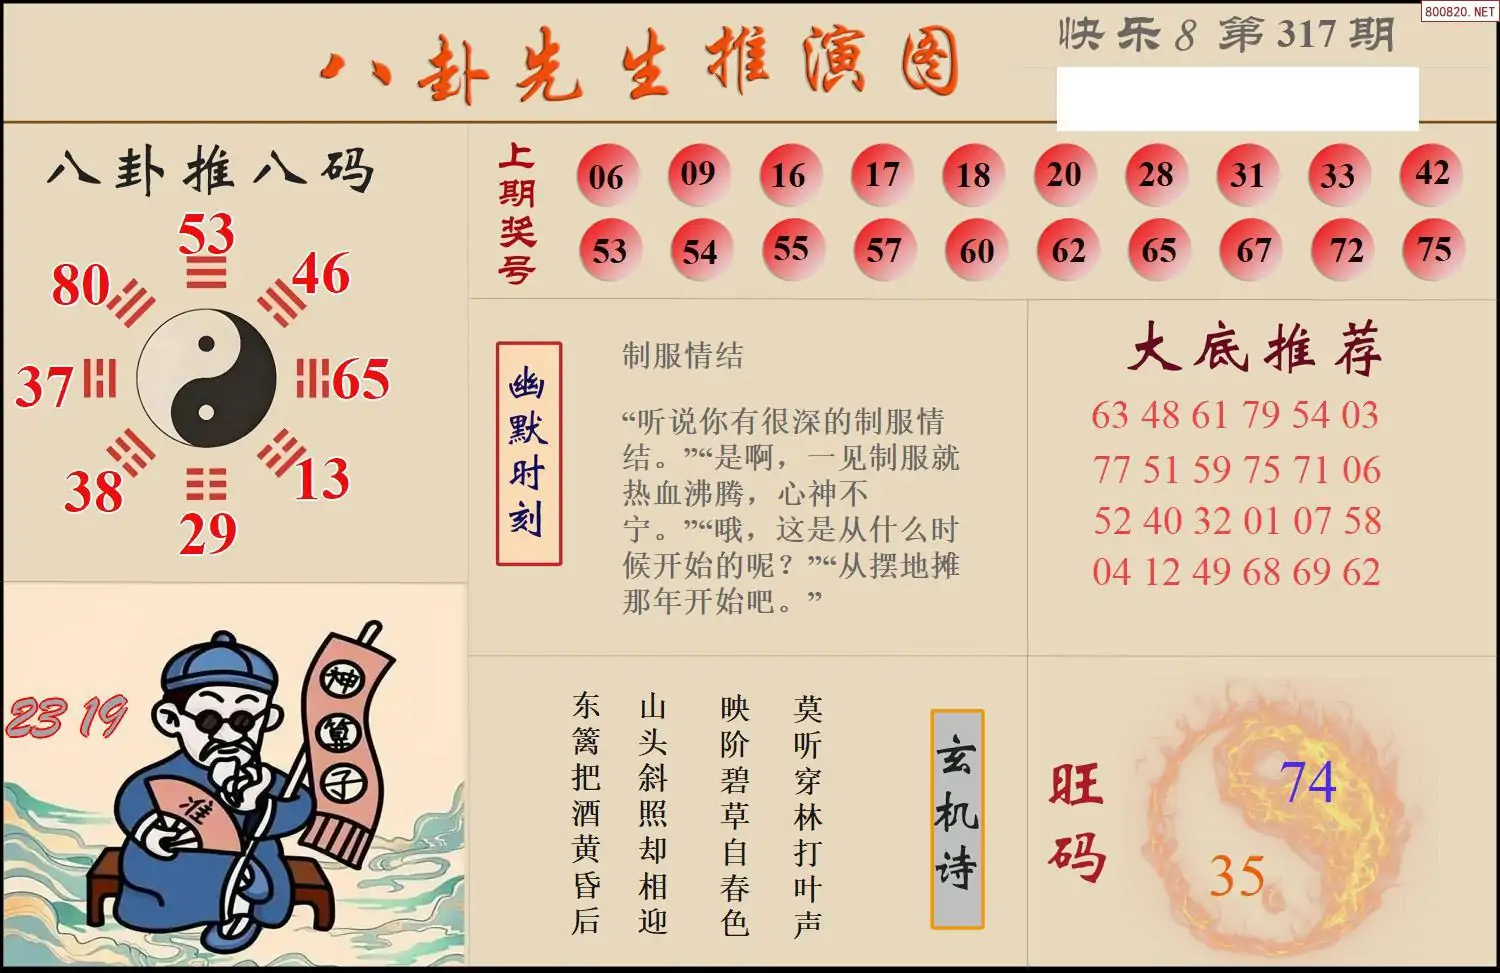 800820.NET
八卦先生推演图
快乐8第317期
八卦推八码
53
80
46
37
65
38
13
29
上期奖号
06 09 16 17 18 20 28 31 33 42
53 54 55 57 60 62 65 67 72 75
幽默时刻
制服情结
“听说你有很深的制服情
结。”“是啊，一见制服就
热血沸腾，心神不
宁。”“哦，这是从什么时
候开始的呢？”“从摆地摊
那年开始吧。”
大底推荐
63 48 61 79 54 03
77 51 59 75 71 06
52 40 32 01 07 58
04 12 49 68 69 62
23 19
神算子
准
玄机诗
莫听穿林打叶声
映阶碧草自春色
山头斜照却相迎
东篱把酒黄昏后
旺码
74
35